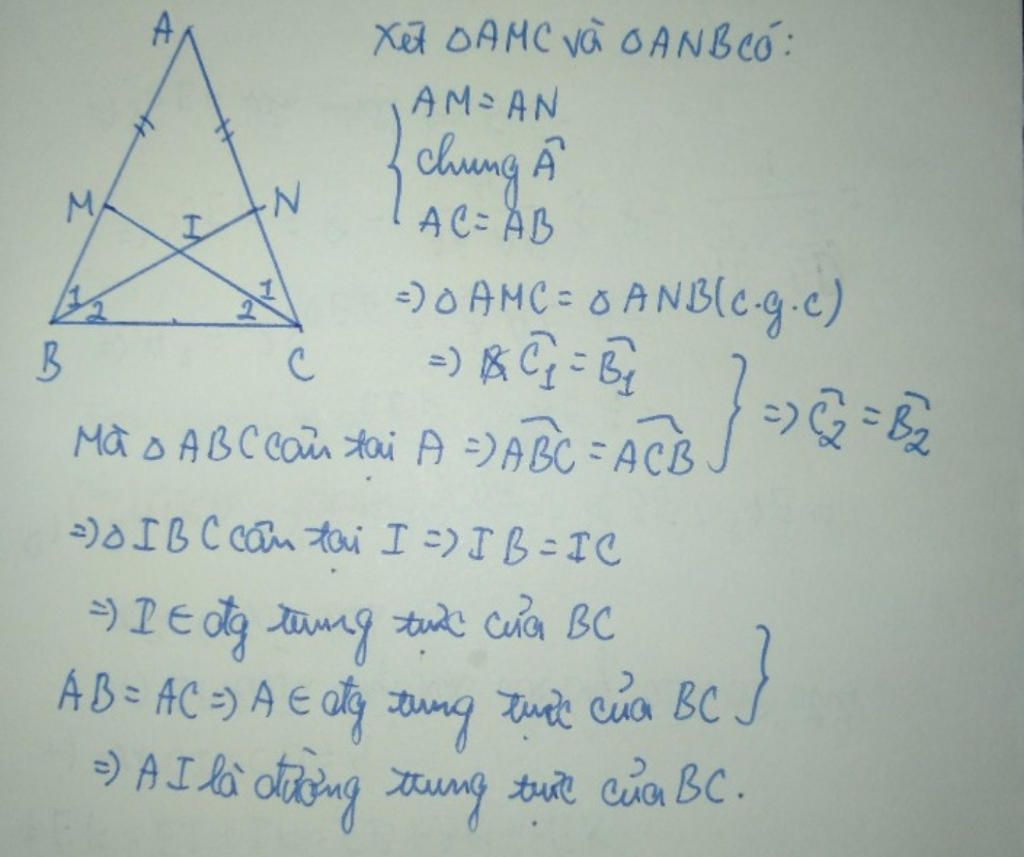 A
M
N
I
1
2
1
2
B
C
Xét △AMC và △ANB có:
AM = AN
chung Â
AC = AB
=> △AMC = △ANB (c.g.c)
=> Ĉ₁ = B̂₁
Mà △ABC cân tại A => ÂBC = ÂCB
=> Ĉ₂ = B̂₂
=> △IBC cân tại I => IB = IC
=> I ∈ đtg trung trực của BC
AB = AC => A ∈ đtg trung trực của BC
=> AI là đường trung trực của BC.